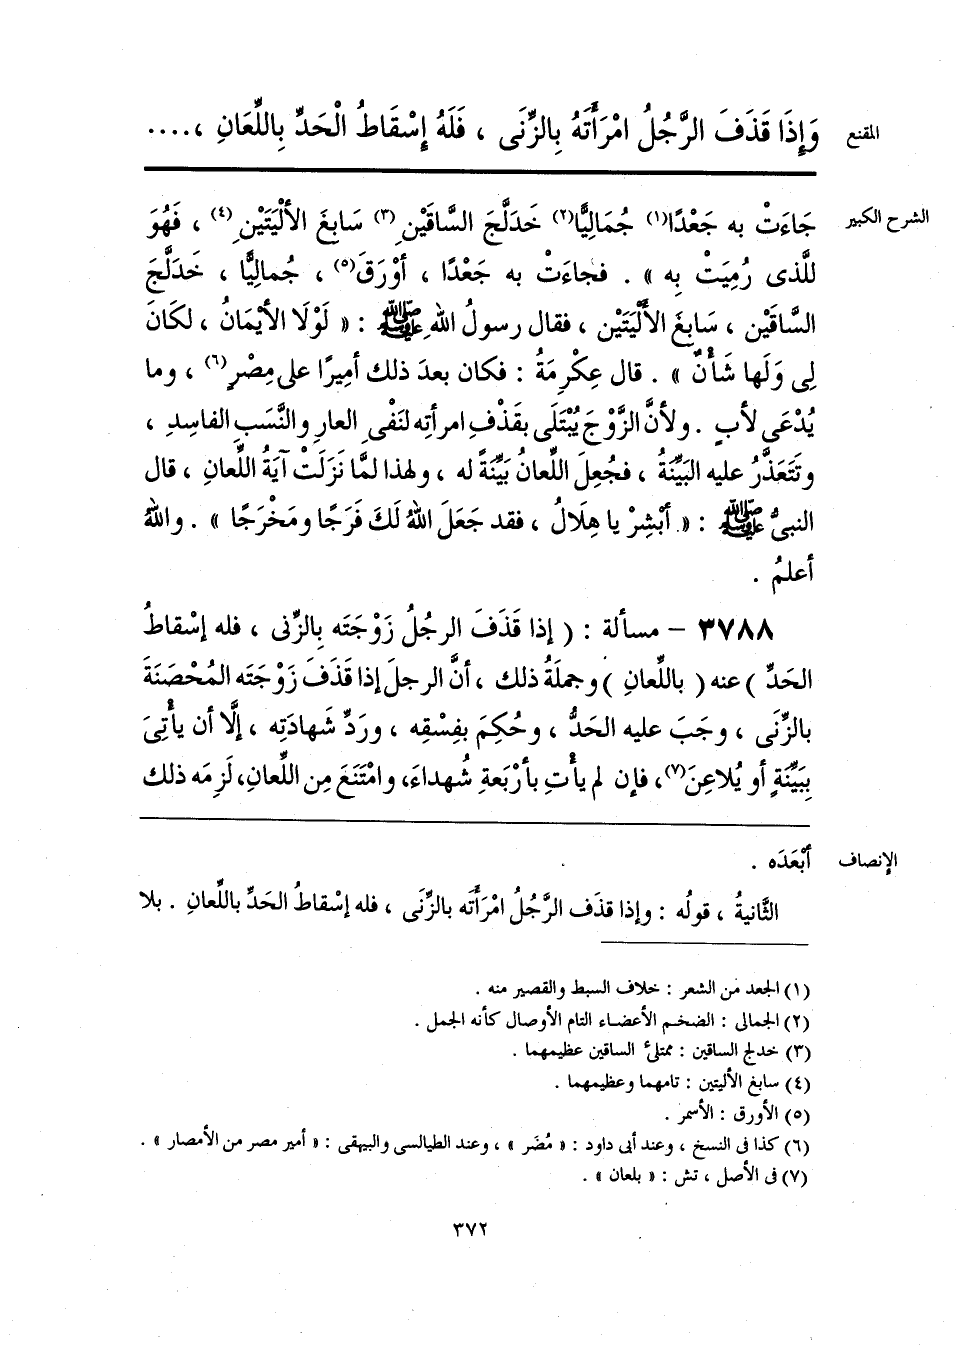 المقنع
وَإِذَا قَذَفَ الرَّجُلُ امْرَأَتَهُ بِالزِّنَى ، فَلَهُ إِسْقَاطُ الْحَدِّ بِاللِّعَانِ ،....
الشرح الكبير
جَاءَتْ به جَعْدًا(١) جُمَالِيًّا(٢) خَدَلَّجَ السَّاقَيْنِ(٣) سَابِغَ الأَلْيَتَيْنِ(٤) ، فَهُوَ
للَّذى رُمِيَتْ بِه » . فجاءَتْ به جَعْدًا ، أوْرَقَ(٥) ، جُمالِيًّا ، خَدَلَّجَ
السَّاقَيْن ، سَابِغَ الأَلْيَتَيْن ، فقال رسولُ اللهِ ﷺ : « لَوْلَا الأيْمَانُ ، لكَانَ
لِى وَلَها شَأْنٌ » . قال عِكْرِمَةُ : فكان بعدَ ذلك أمِيرًا على مِصْرٍ(٦) ، وما
يُدْعَى لأبٍ . ولأنَّ الزَّوْجَ يُبْتَلَى بقَذْفِ امرأتِه لنَفْىِ العارِ والنَّسَبِ الفاسِدِ ،
وتَتَعَذَّرُ عليه البَيِّنَةُ ، فجُعِلَ اللِّعانُ بَيِّنَةً له ، ولهذا لمَّا نَزَلَتْ آيَةُ اللِّعانِ ، قال
النبىُّ ﷺ : « أبْشِرْ يا هِلَالُ ، فقد جَعَلَ اللهُ لَكَ فَرَجًا ومَخْرَجًا » . واللهُ
أعلمُ .
٣٧٨٨ – مسألة : ( إذا قَذَفَ الرجُلُ زَوْجَتَه بِالزِّنى ، فله إسْقاطُ
الحَدِّ ) عنه ( باللِّعانِ ) وجملَةُ ذلك ، أنَّ الرجلَ إذا قَذَفَ زَوْجَتَه المُحْصَنَةَ
بالزِّنَى ، وجَبَ عليه الحَدُّ ، وحُكِمَ بفِسْقِه ، ورَدِّ شَهادَتِه ، إلَّا أن يأْتِىَ
بِبَيِّنَةٍ أو يُلاعِنَ(٧)، فإن لم يأْتِ بأرْبَعةِ شُهداءَ، وامْتَنَعَ مِن اللِّعانِ، لَزِمَه ذلك
الإنصاف
أبْعَدَه .
الثَّانيةُ ، قولُه : وإذا قذَف الرَّجُلُ امْرَأَتَه بالزِّنَى ، فله إسْقاطُ الحَدِّ باللِّعانِ . بلا
(١) الجعد من الشعر : خلاف السبط والقصير منه .
(٢) الجمالى : الضخم الأعضاء التام الأوصال كأنه الجمل .
(٣) خدلج الساقين : ممتلئ الساقين عظيمهما .
(٤) سابغ الأليتين : تامهما وعظيمهما .
(٥) الأورق : الأسمر .
(٦) كذا فى النسخ ، وعند أبى داود : « مُضَر » ، وعند الطيالسى والبيهقى : « أمير مصر من الأمصار » .
(٧) فى الأصل ، تش : « بلعان » .
٣٧٢